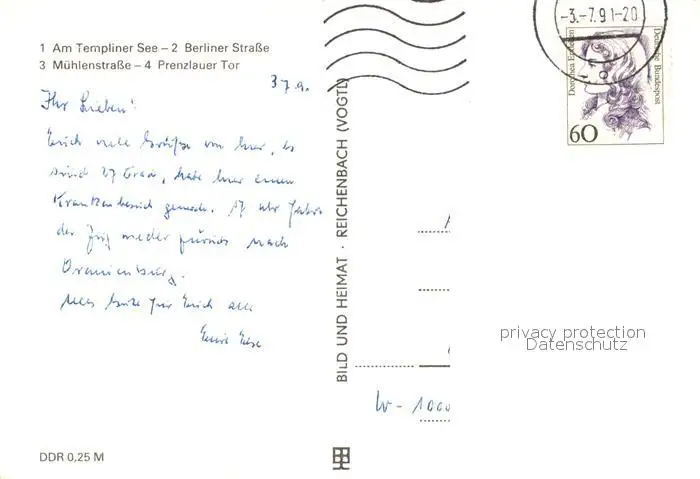 1 Am Templiner See – 2 Berliner Straße
3 Mühlenstraße – 4 Prenzlauer Tor
3 7 9.
Ihr Lieben!
Euch viele Grüße von hier, es
sind 27 Grad, habe hier einen
Krankenbesuch gemacht. 17 Uhr
der Zug wieder zurück nach
Oranienburg.
Alles Gute für Euch alle
Eure
BILD UND HEIMAT · REICHENBACH (VOGTL)
-3.-7.91-20
Dorothea Erxleben
Deutsche Bundespost
60
privacy protection
Datenschutz
W - 1000
DDR 0,25 M